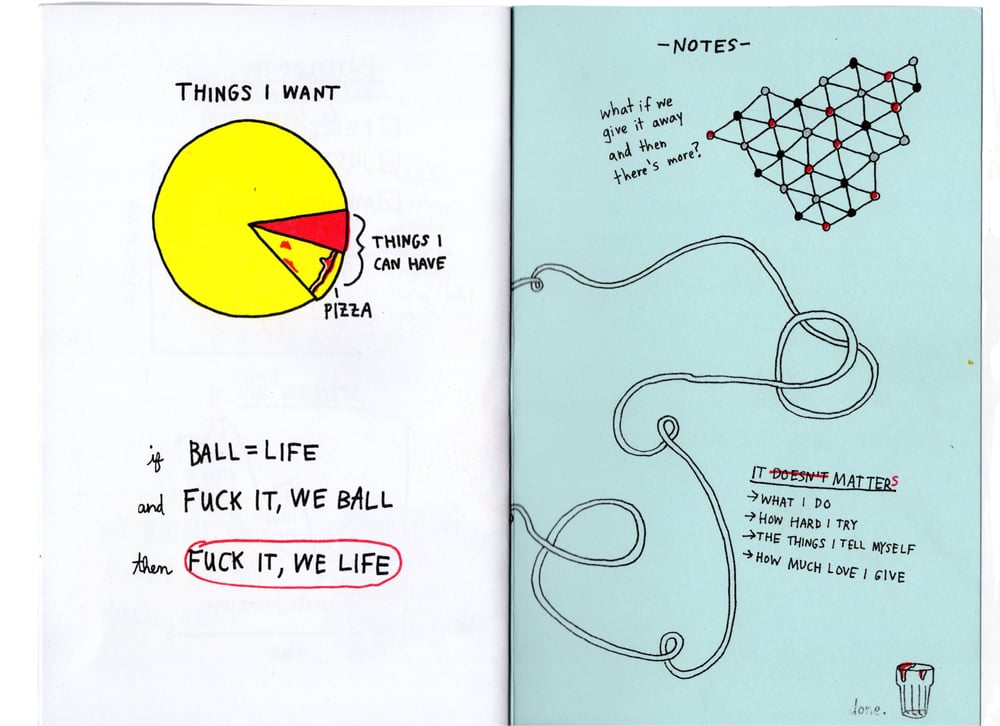 THINGS I WANT
THINGS I
CAN HAVE
PIZZA
if BALL = LIFE
and FUCK IT, WE BALL
then FUCK IT, WE LIFE
-NOTES-
what if we
give it away
and then
there's more?
IT DOESN'T MATTERS
→WHAT I DO
→HOW HARD I TRY
→THE THINGS I TELL MYSELF
→HOW MUCH LOVE I GIVE
done.